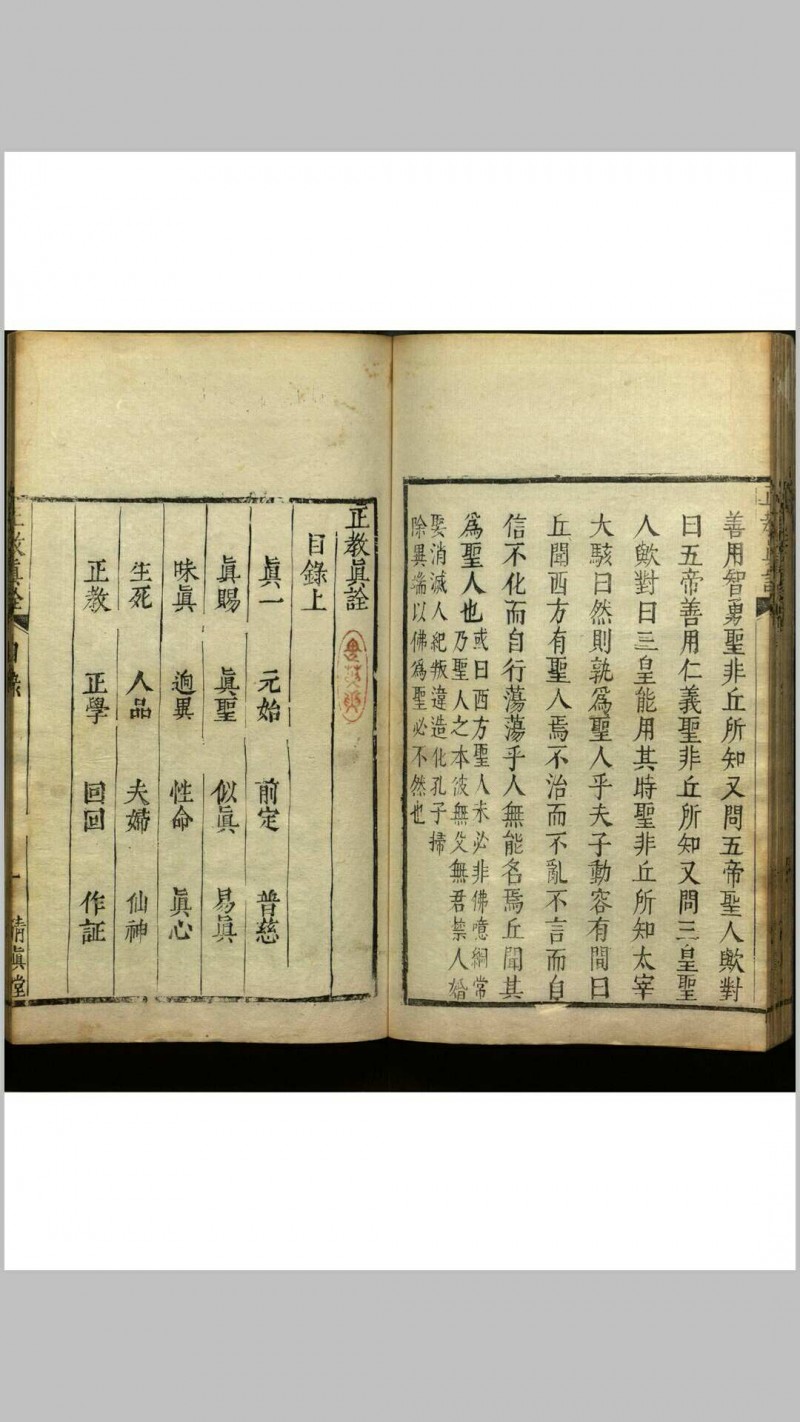 善用智勇聖非丘所知又問五帝聖人歟對
曰五帝善用仁義聖非丘所知又問三皇聖
人歟對曰三皇能用其時聖非丘所知太宰
大駭曰然則孰為聖人乎夫子動容有間曰
丘聞西方有聖人焉不治而不亂不言而自
信不化而自行蕩蕩乎人無能名焉丘聞其
為聖人也
或曰西方聖人未必非佛噫綱常
乃聖人之本彼無父無君禁人婚
娶消滅人紀叛違造化孔子掃
除異端以佛為聖必不然也
正教眞詮
目錄上
眞一 元始 前定 普慈
眞賜 眞聖 似眞 易眞
昧眞 逈異 性命 眞心
生死 人品 夫婦 仙神
正教 正學 回回 作証
正教眞詮 目錄 一 清眞堂